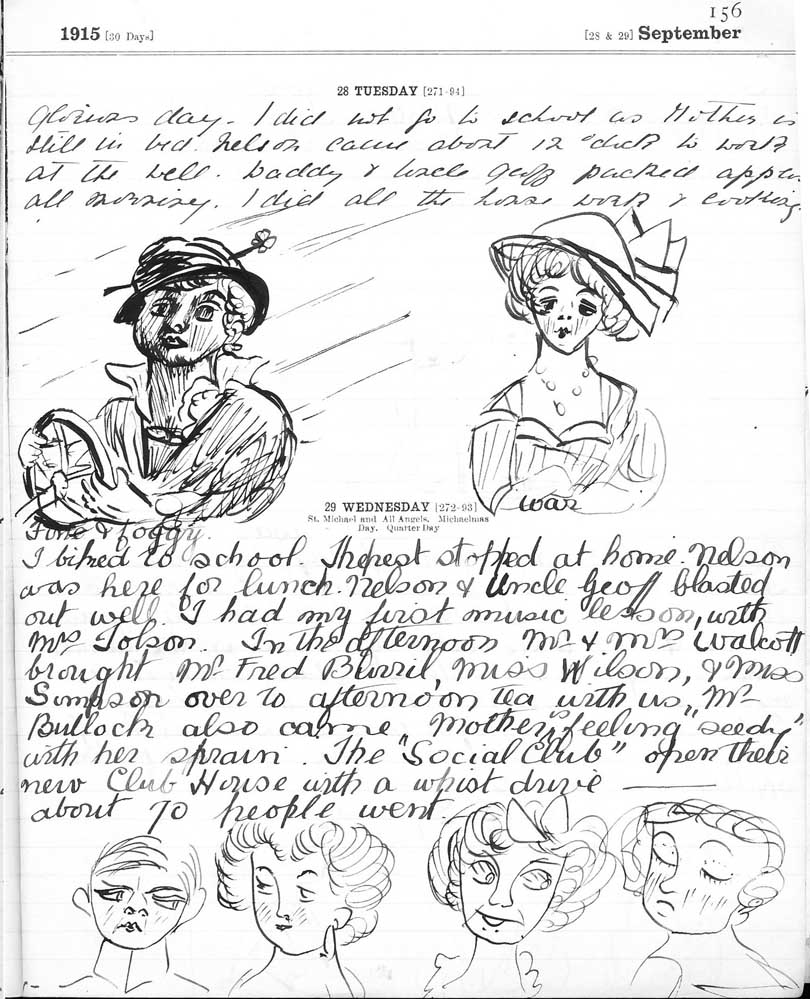 156
1915 [30 Days] [28 & 29] September
28 TUESDAY [271-94]
Glorious day. I did not go to school as Mother is
still in bed. Nelson came about 12 o'clock to work
at the well. Daddy & Uncle Geoff packed apples
all morning. I did all the house work & cooking.
war
29 WEDNESDAY [272-93]
St. Michael and All Angels. Michaelmas
Day. Quarter Day
Fine & foggy.
I biked to school. The rest stopped at home. Nelson
was here for lunch. Nelson & Uncle Geoff blasted
out well. I had my first music lesson, with
Mrs Tolson. In the afternoon Mr & Mrs Walcott
brought Mr Fred Burril, Miss Wilson, & Miss
Simpson over to afternoon tea with us, Mr
Bullock also came, Mother is feeling "seedy"
with her sprain. The "Social Club" open their
new Club House with a whist drive ——
about 70 people went.